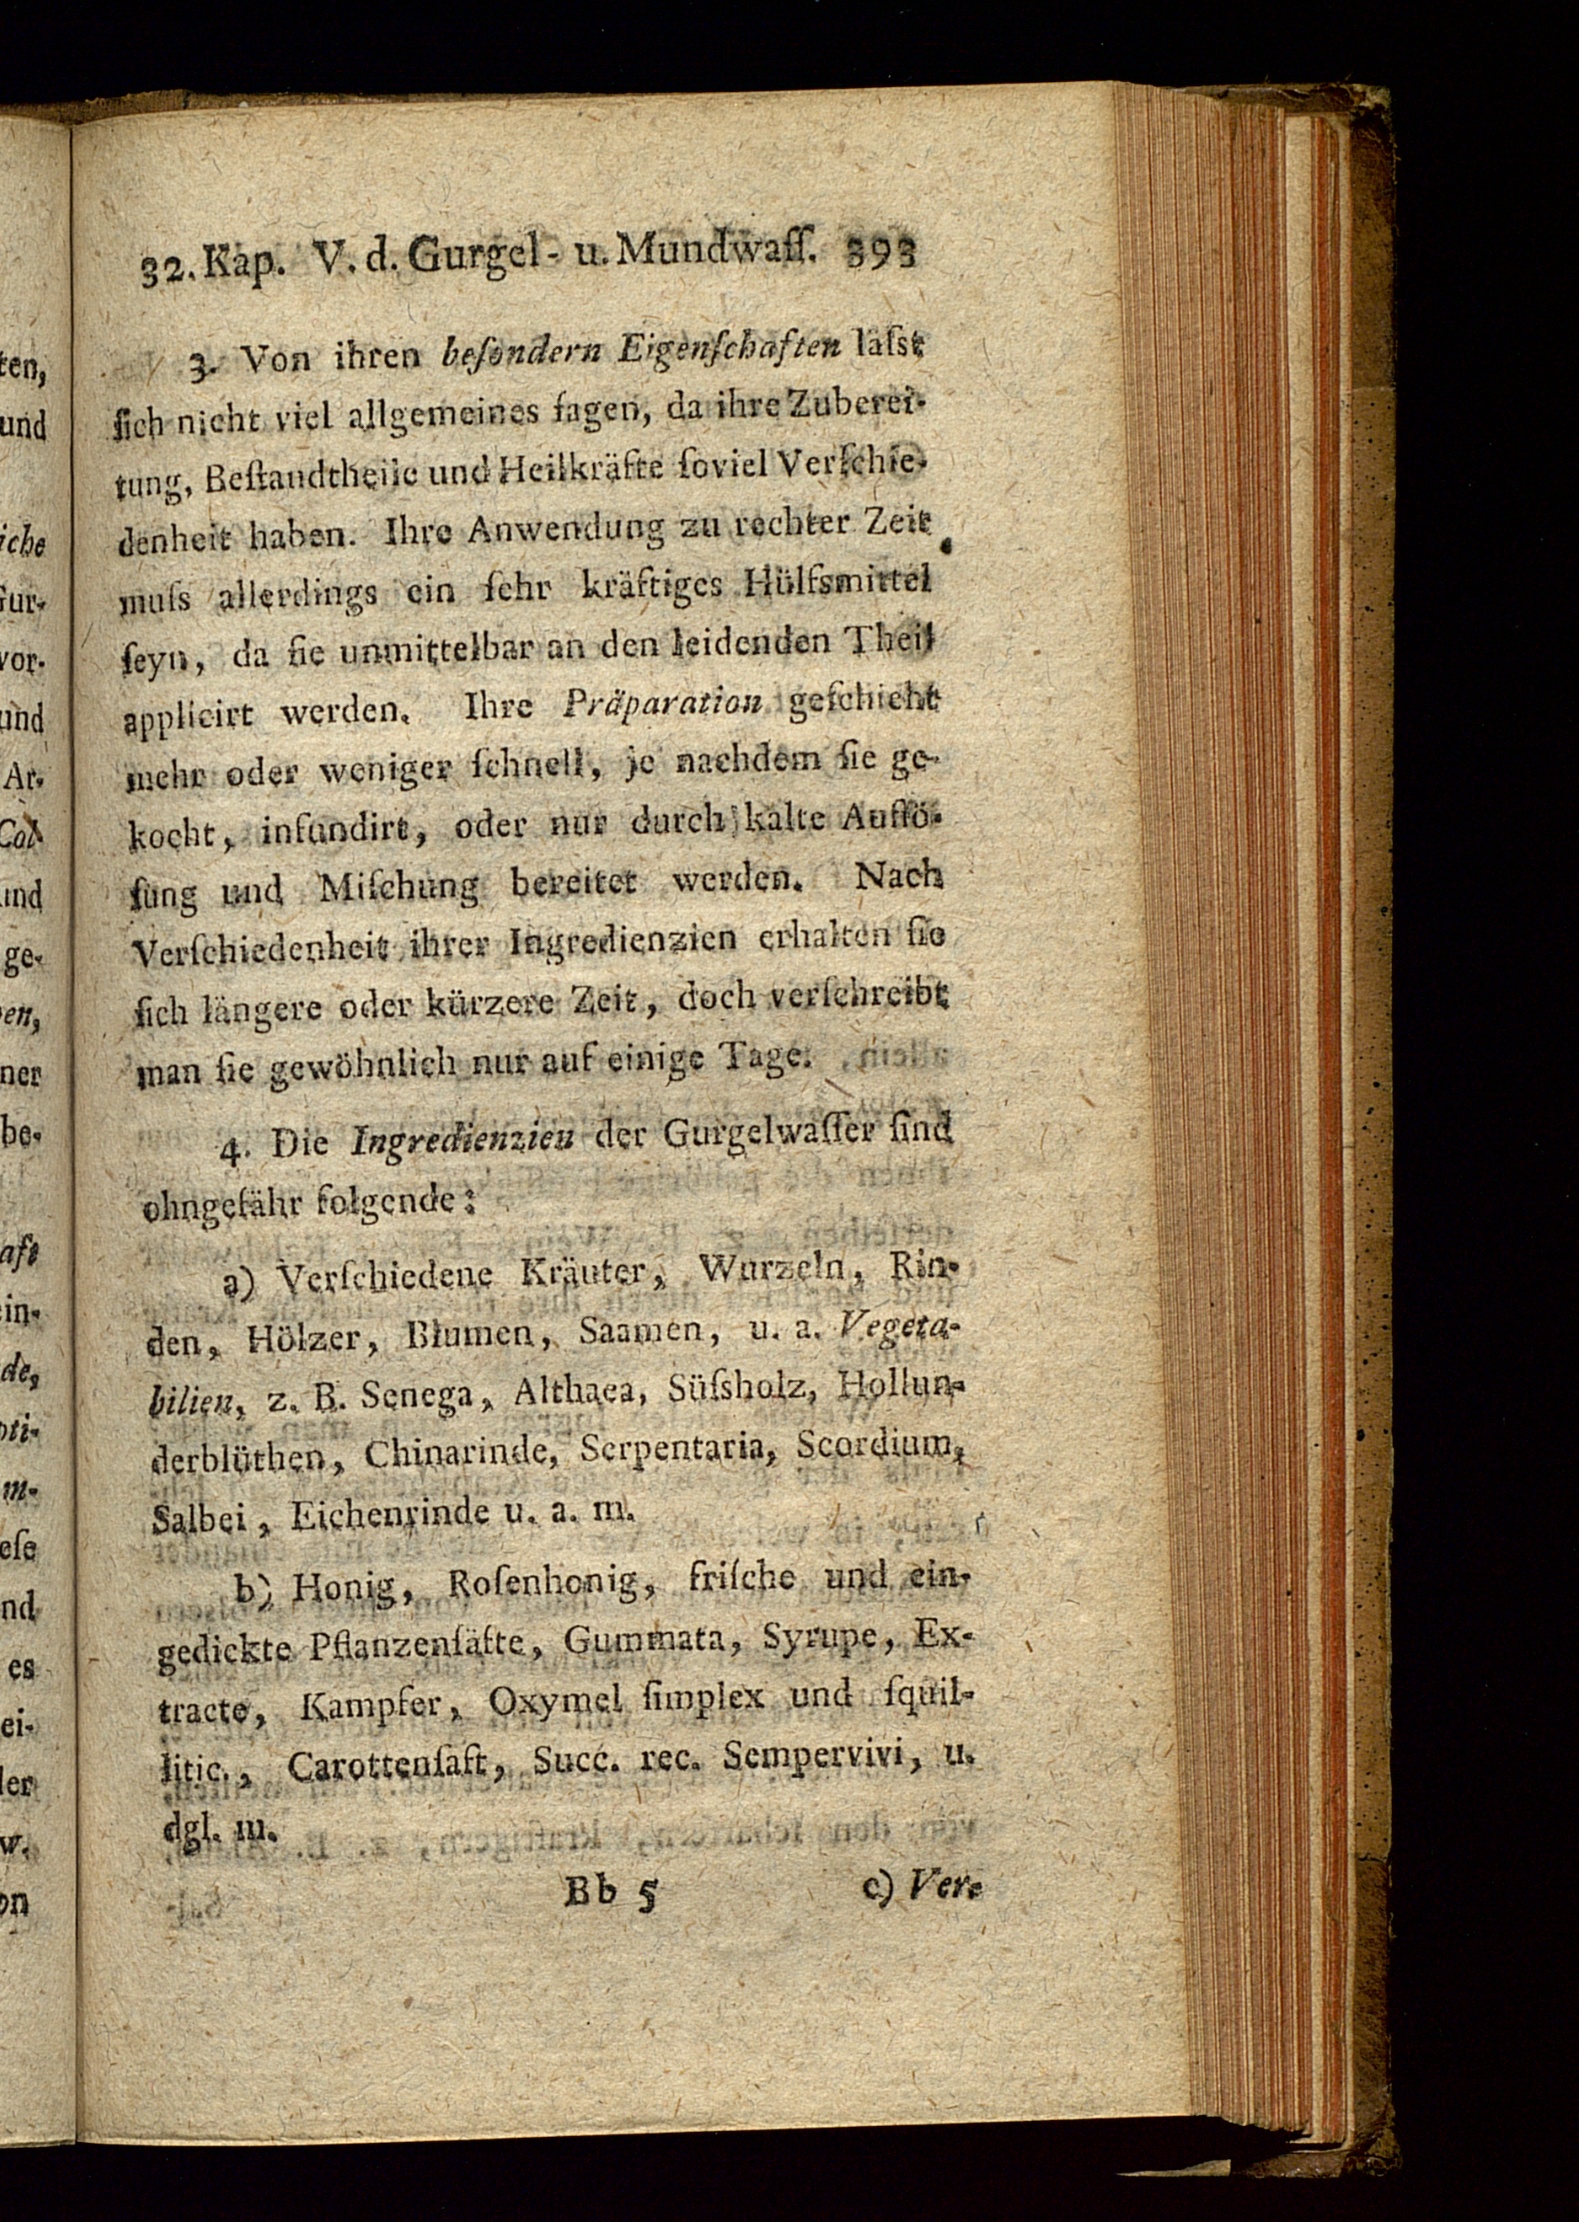 32. Kap. V. d. Gurgel- u. Mundwaſſ. 393
3. Von ihren beſondern Eigenſchaften läſst
ſich nicht viel allgemeines ſagen, da ihre Zuberei-
tung, Beſtandtheile und Heilkräfte ſoviel Verſchie-
denheit haben. Ihre Anwendung zu rechter Zeit
muſs allerdings ein ſehr kräftiges Hülfsmittel
ſeyn, da ſie unmittelbar an den leidenden Theil
applicirt werden. Ihre Präparation geſchieht
mehr oder weniger ſchnell, je nachdem ſie ge-
kocht, infundirt, oder nur durch kalte Auflö-
ſung und Miſchung bereitet werden. Nach
Verſchiedenheit ihrer Ingredienzien erhalten ſie
ſich längere oder kürzere Zeit, doch verſchreibt
man ſie gewöhnlich nur auf einige Tage.
4. Die Ingredienzien der Gurgelwaſſer ſind
ohngefähr folgende:
a) Verſchiedene Kräuter, Wurzeln, Rin-
den, Hölzer, Blumen, Saamen, u. a. Vegeta-
bilien, z. B. Senega, Althaea, Süſsholz, Hollun-
derblüthen, Chinarinde, Serpentaria, Scordium,
Salbei, Eichenrinde u. a. m.
b) Honig, Roſenhonig, friſche und ein-
gedickte Pflanzenſäfte, Gummata, Syrupe, Ex-
tracte, Kampfer, Oxymel ſimplex und ſquil-
litic., Carottenſaft, Succ. rec. Sempervivi, u.
dgl. m.
Bb 5 c) Ver-